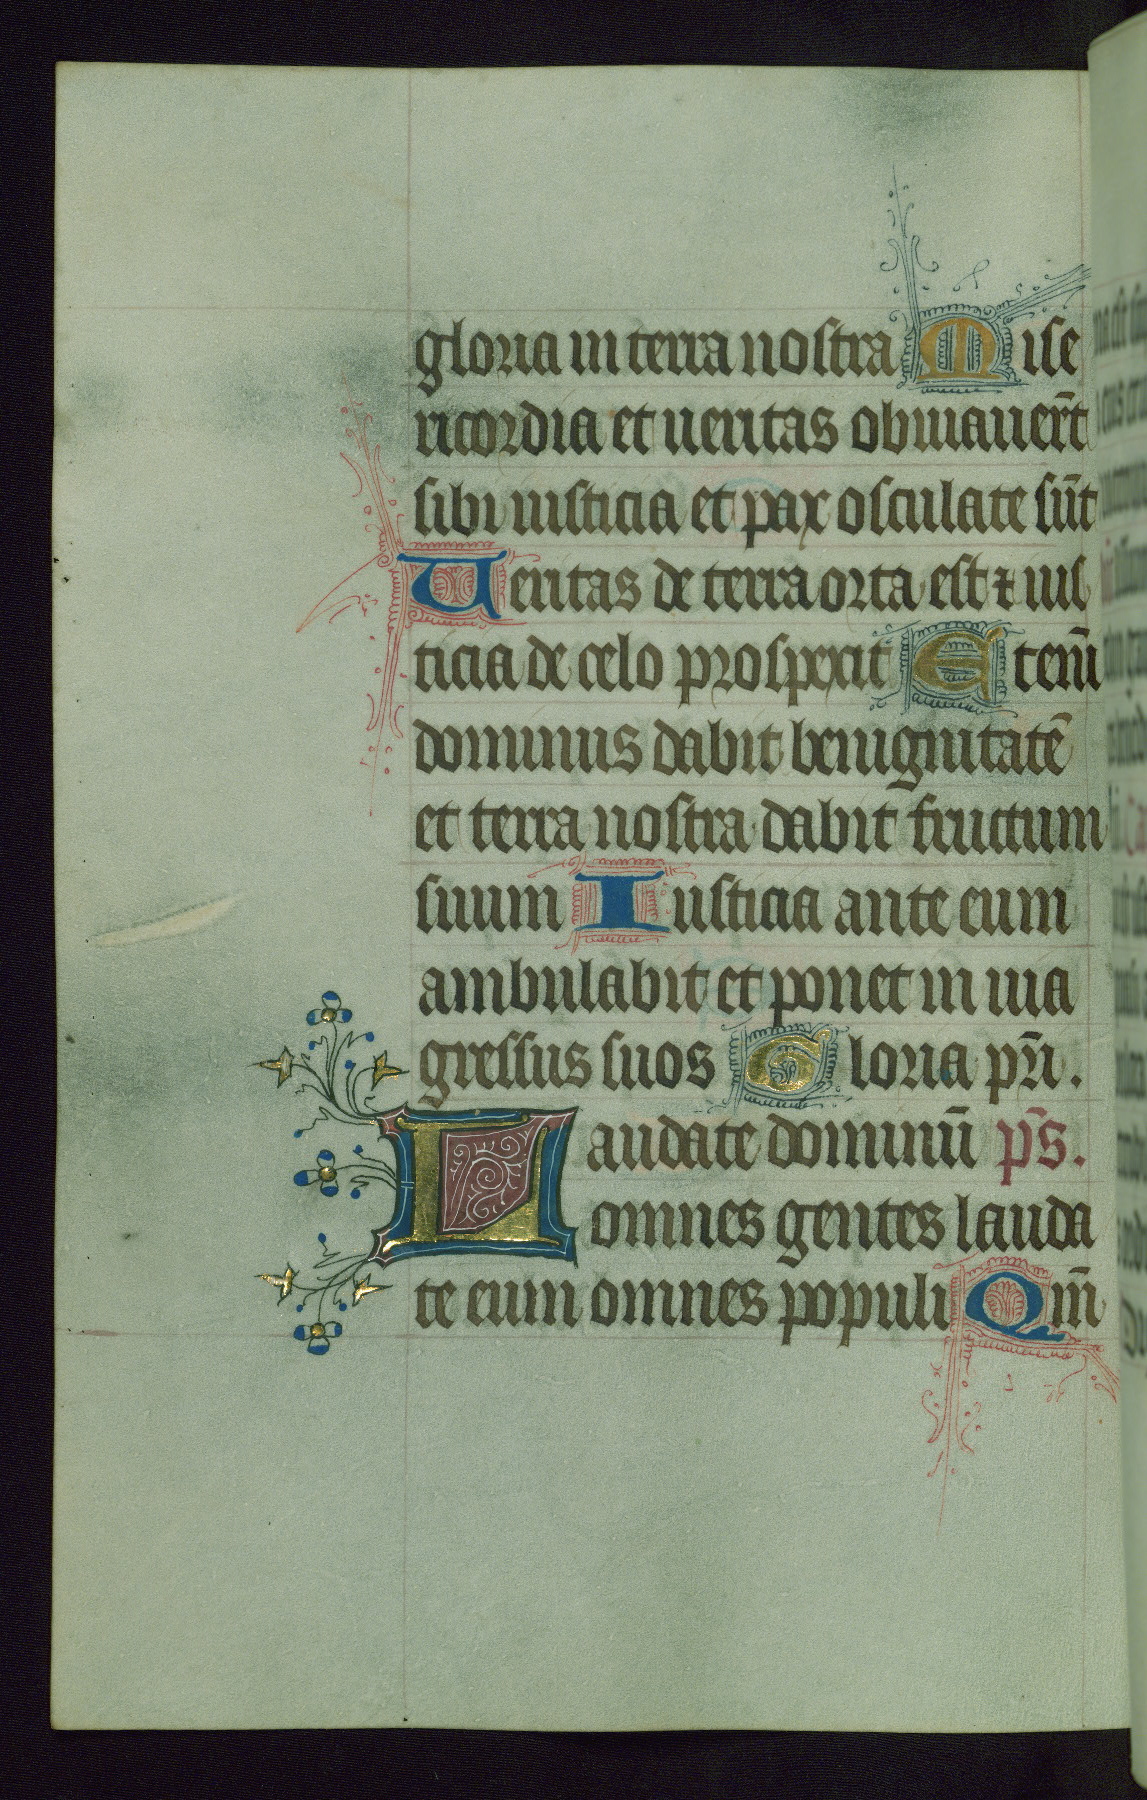 gloria in terra nostra Mise
ricordia et ueritas obuiauer̄t
sibi iusticia et pax osculate sūt
Ueritas de terra orta est ⁊ ius
ticia de celo prospexit Etenī
dominus dabit benignitatē
et terra nostra dabit fructum
suum Iusticia ante eum
ambulabit et ponet in uia
gressus suos Gloria pr̄i.
Laudate dominū p̄s.
omnes gentes lauda
te eum omnes populi Qm̄